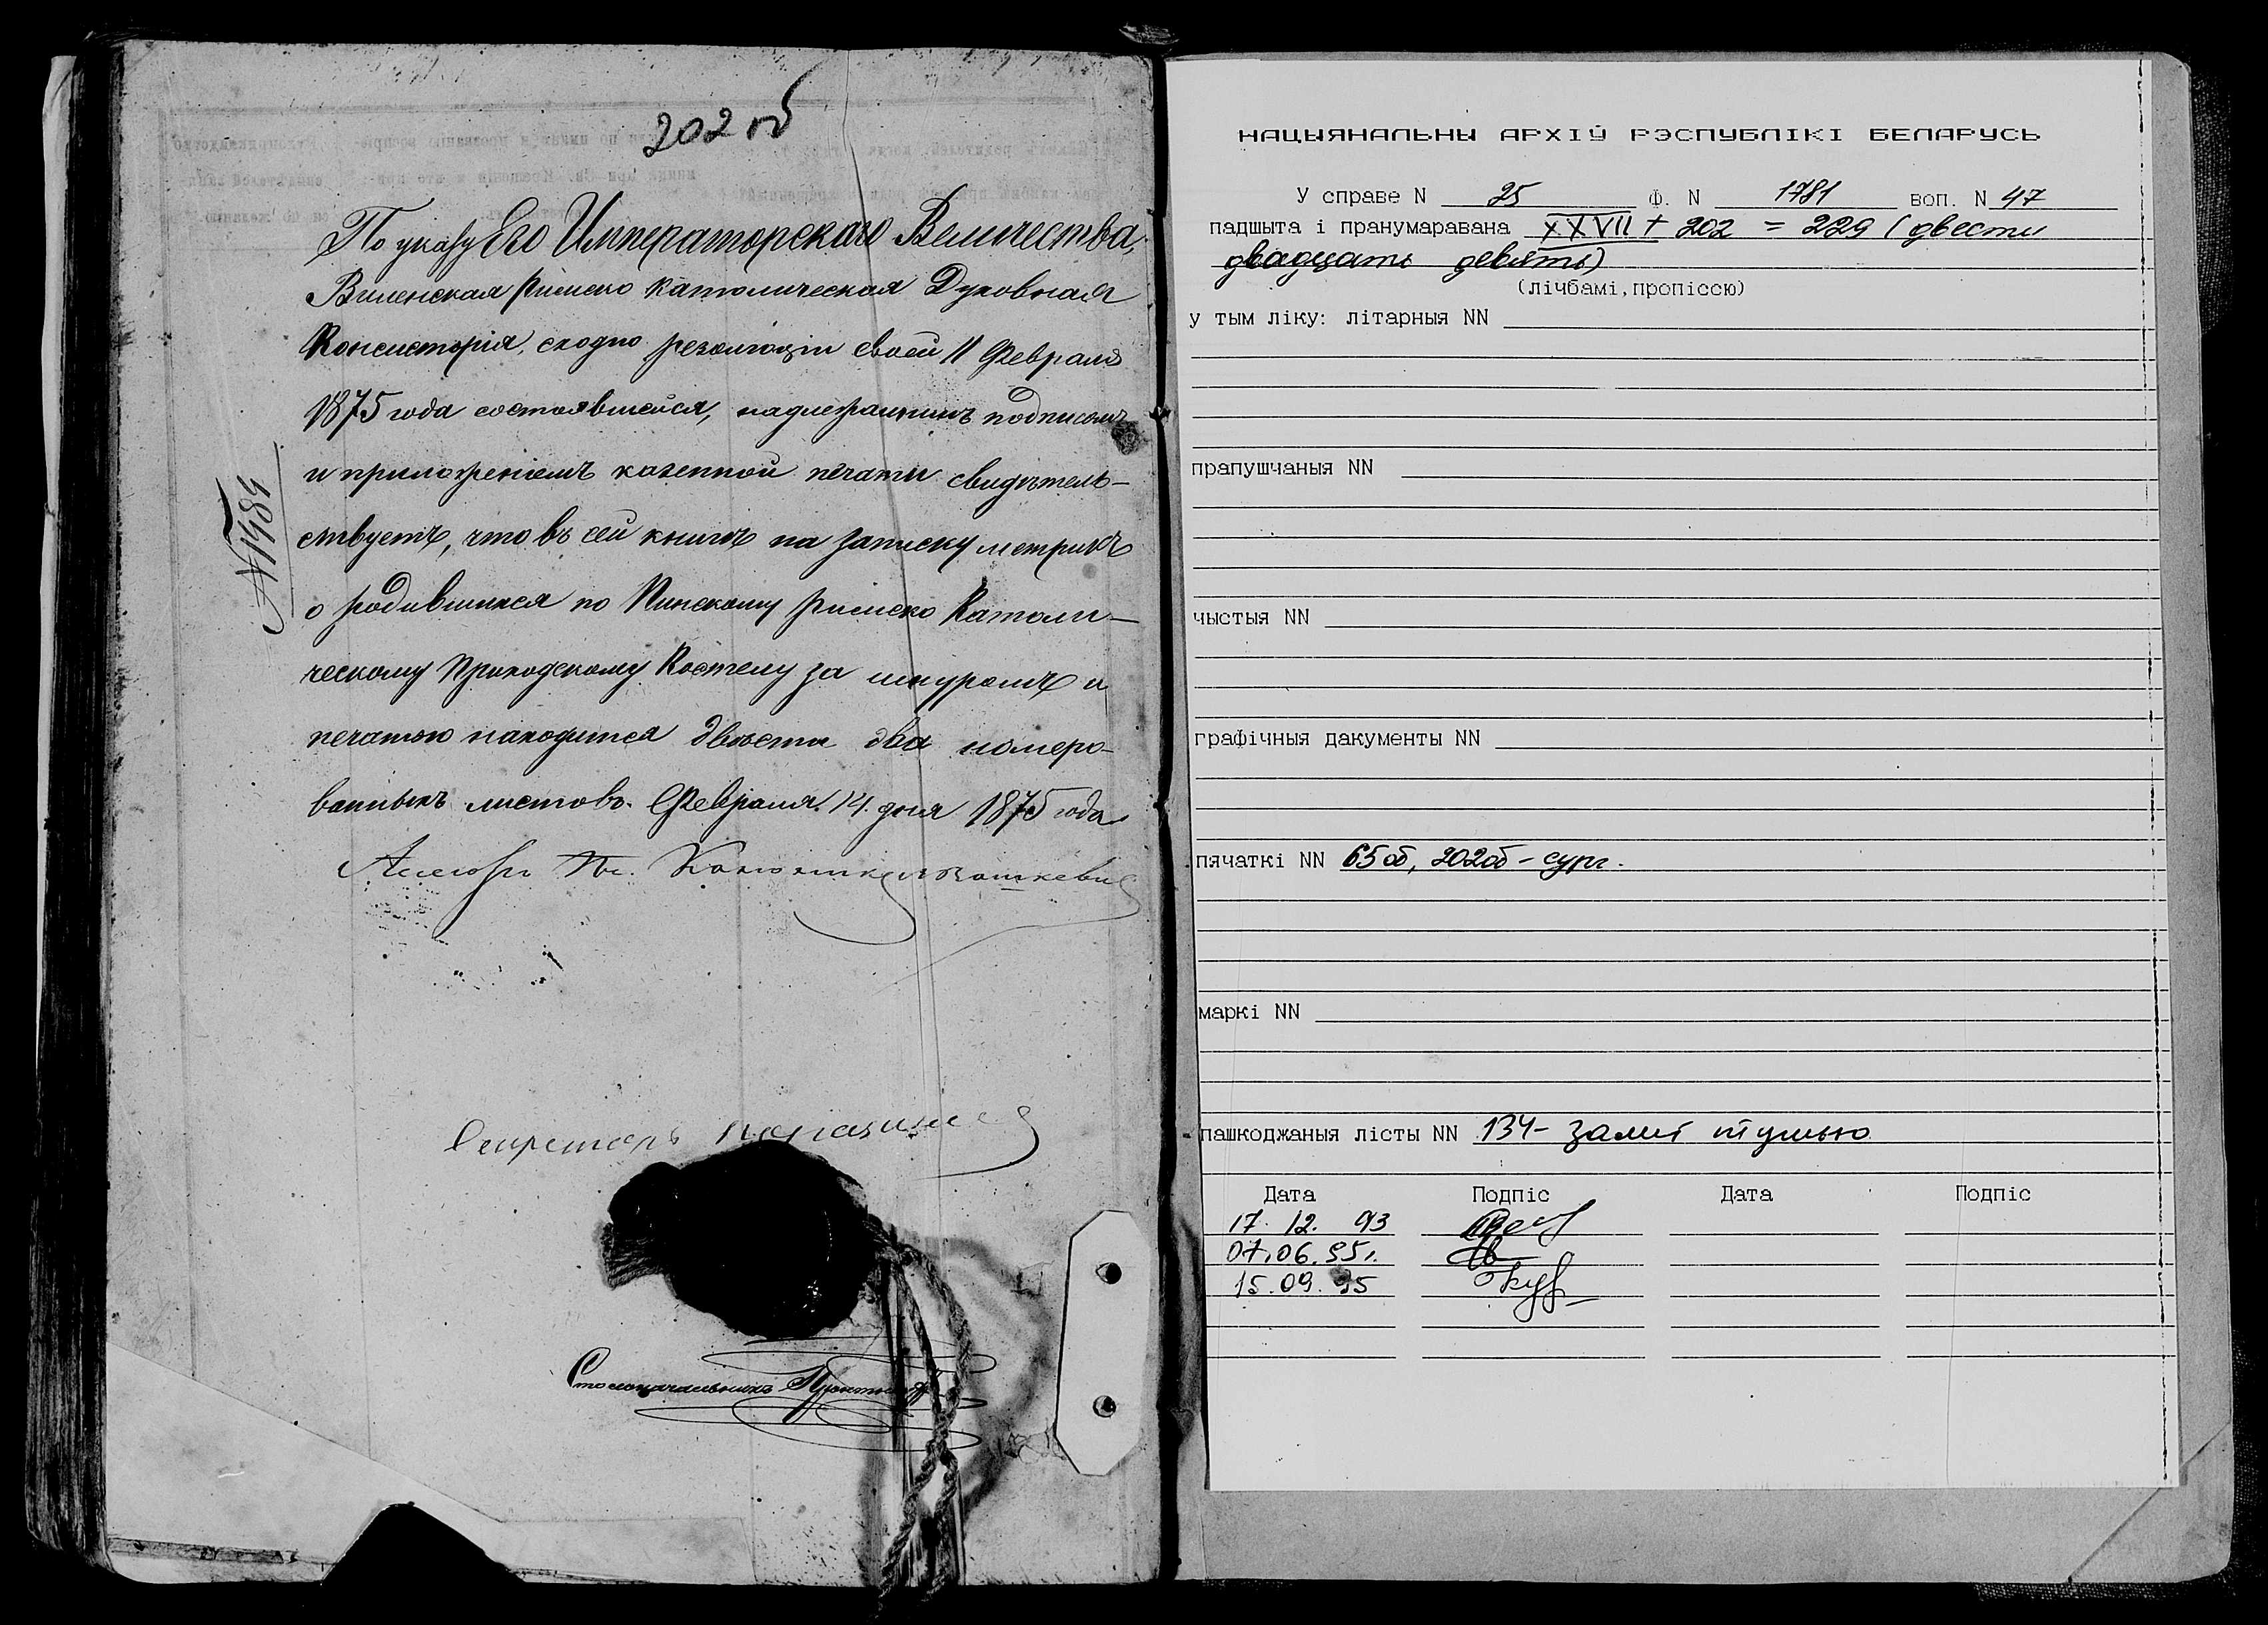 202 об
По указу Его Императорскаго Величества,
Виленская Римско Католическая Духовная
Консисторія, сходно резолюціи своей 11 Февраля
1875 года состоявшейся, надлежащимъ подписомъ
и приложеніемъ казенной печати свидѣтель-
ствуетъ, что въ сей книгѣ на записку метрикъ
о родившихся по Пинскому Римско Католи-
ческому Приходскому Костелу за шнуромъ и
печатью находится двѣсти два номеро-
ванныхъ листовъ. Февраля 14 дня 1875 года
№ 1484
Секретарь
Столоначальникъ
НАЦЫЯНАЛЬНЫ АРХІЎ РЭСПУБЛІКІ БЕЛАРУСЬ
У справе N 25 Ф. N 1781 воп. N 47
падшыта і пранумаравана XXVII + 202 = 229 (двести
двадцать девять)
(лічбамі,пропіссю)
у тым ліку: літарныя NN
прапушчаныя NN
чыстыя NN
графічныя дакументы NN
пячаткі NN 65об, 202об - сург.
маркі NN
пашкоджаныя лісты NN 134- залит тушью
Дата Подпіс Дата Подпіс
17. 12. 93
07.06.95г.
15.09.95